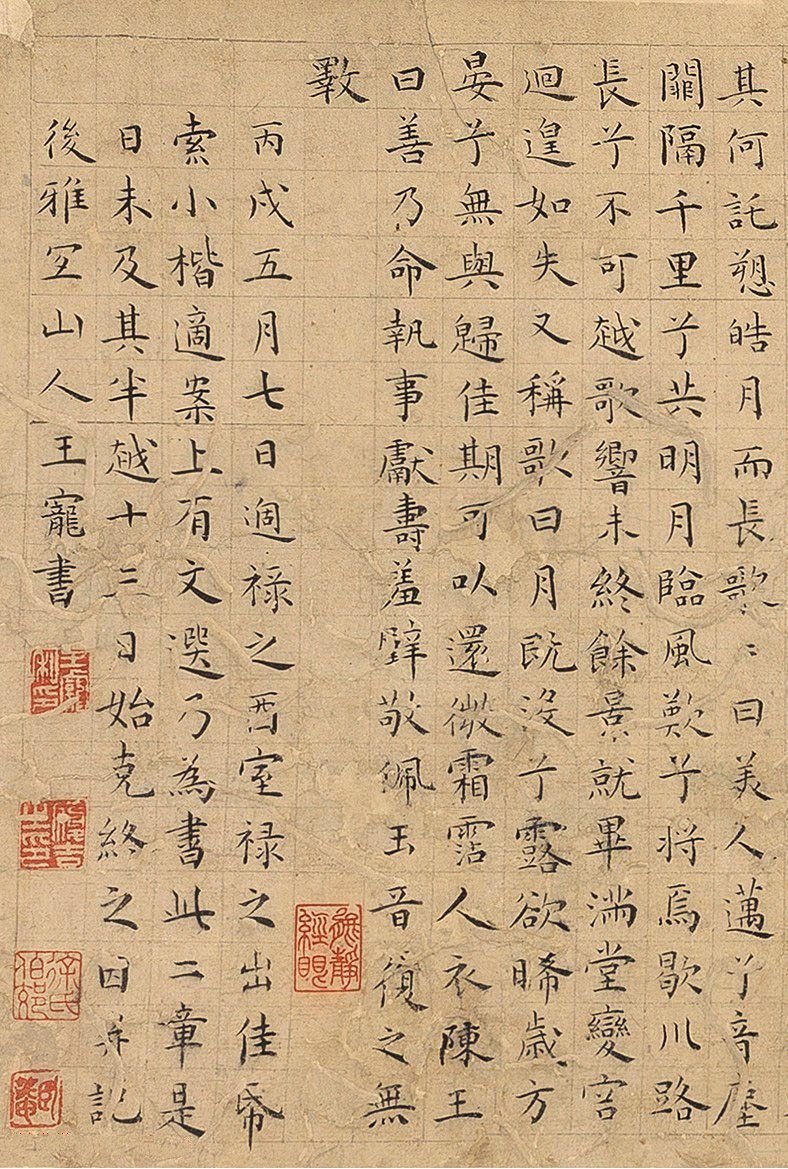 其何託愬皓月而長歌〻曰美人邁兮音塵
闕隔千里兮共明月臨風歎兮將焉歇川路
長兮不可越歌響未終餘景就畢滿堂變容
迴遑如失又稱歌曰月既没兮露欲晞歲方
晏兮無與歸佳期可以還微霜霑人衣陳王
曰善乃命執事獻壽羞璧敬佩玉音復之無
斁
丙戌五月七日過祿之西室祿之出佳帋
索小楷適案上有文選乃為書此二章是
日未及其半越十三日始克終之因并記
後雅宜山人王寵書